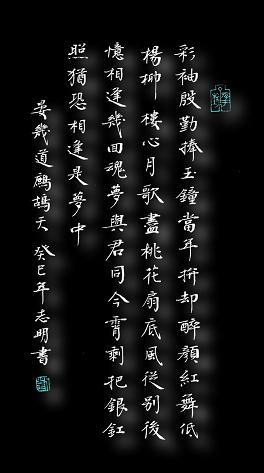 彩袖殷勤捧玉鐘當年拚却醉顏紅舞低
楊柳樓心月歌盡桃花扇底風從別後
憶相逢幾回魂夢與君同今霄剩把銀釭
照猶恐相逢是夢中
晏幾道鷓鴣天 癸巳年志明書